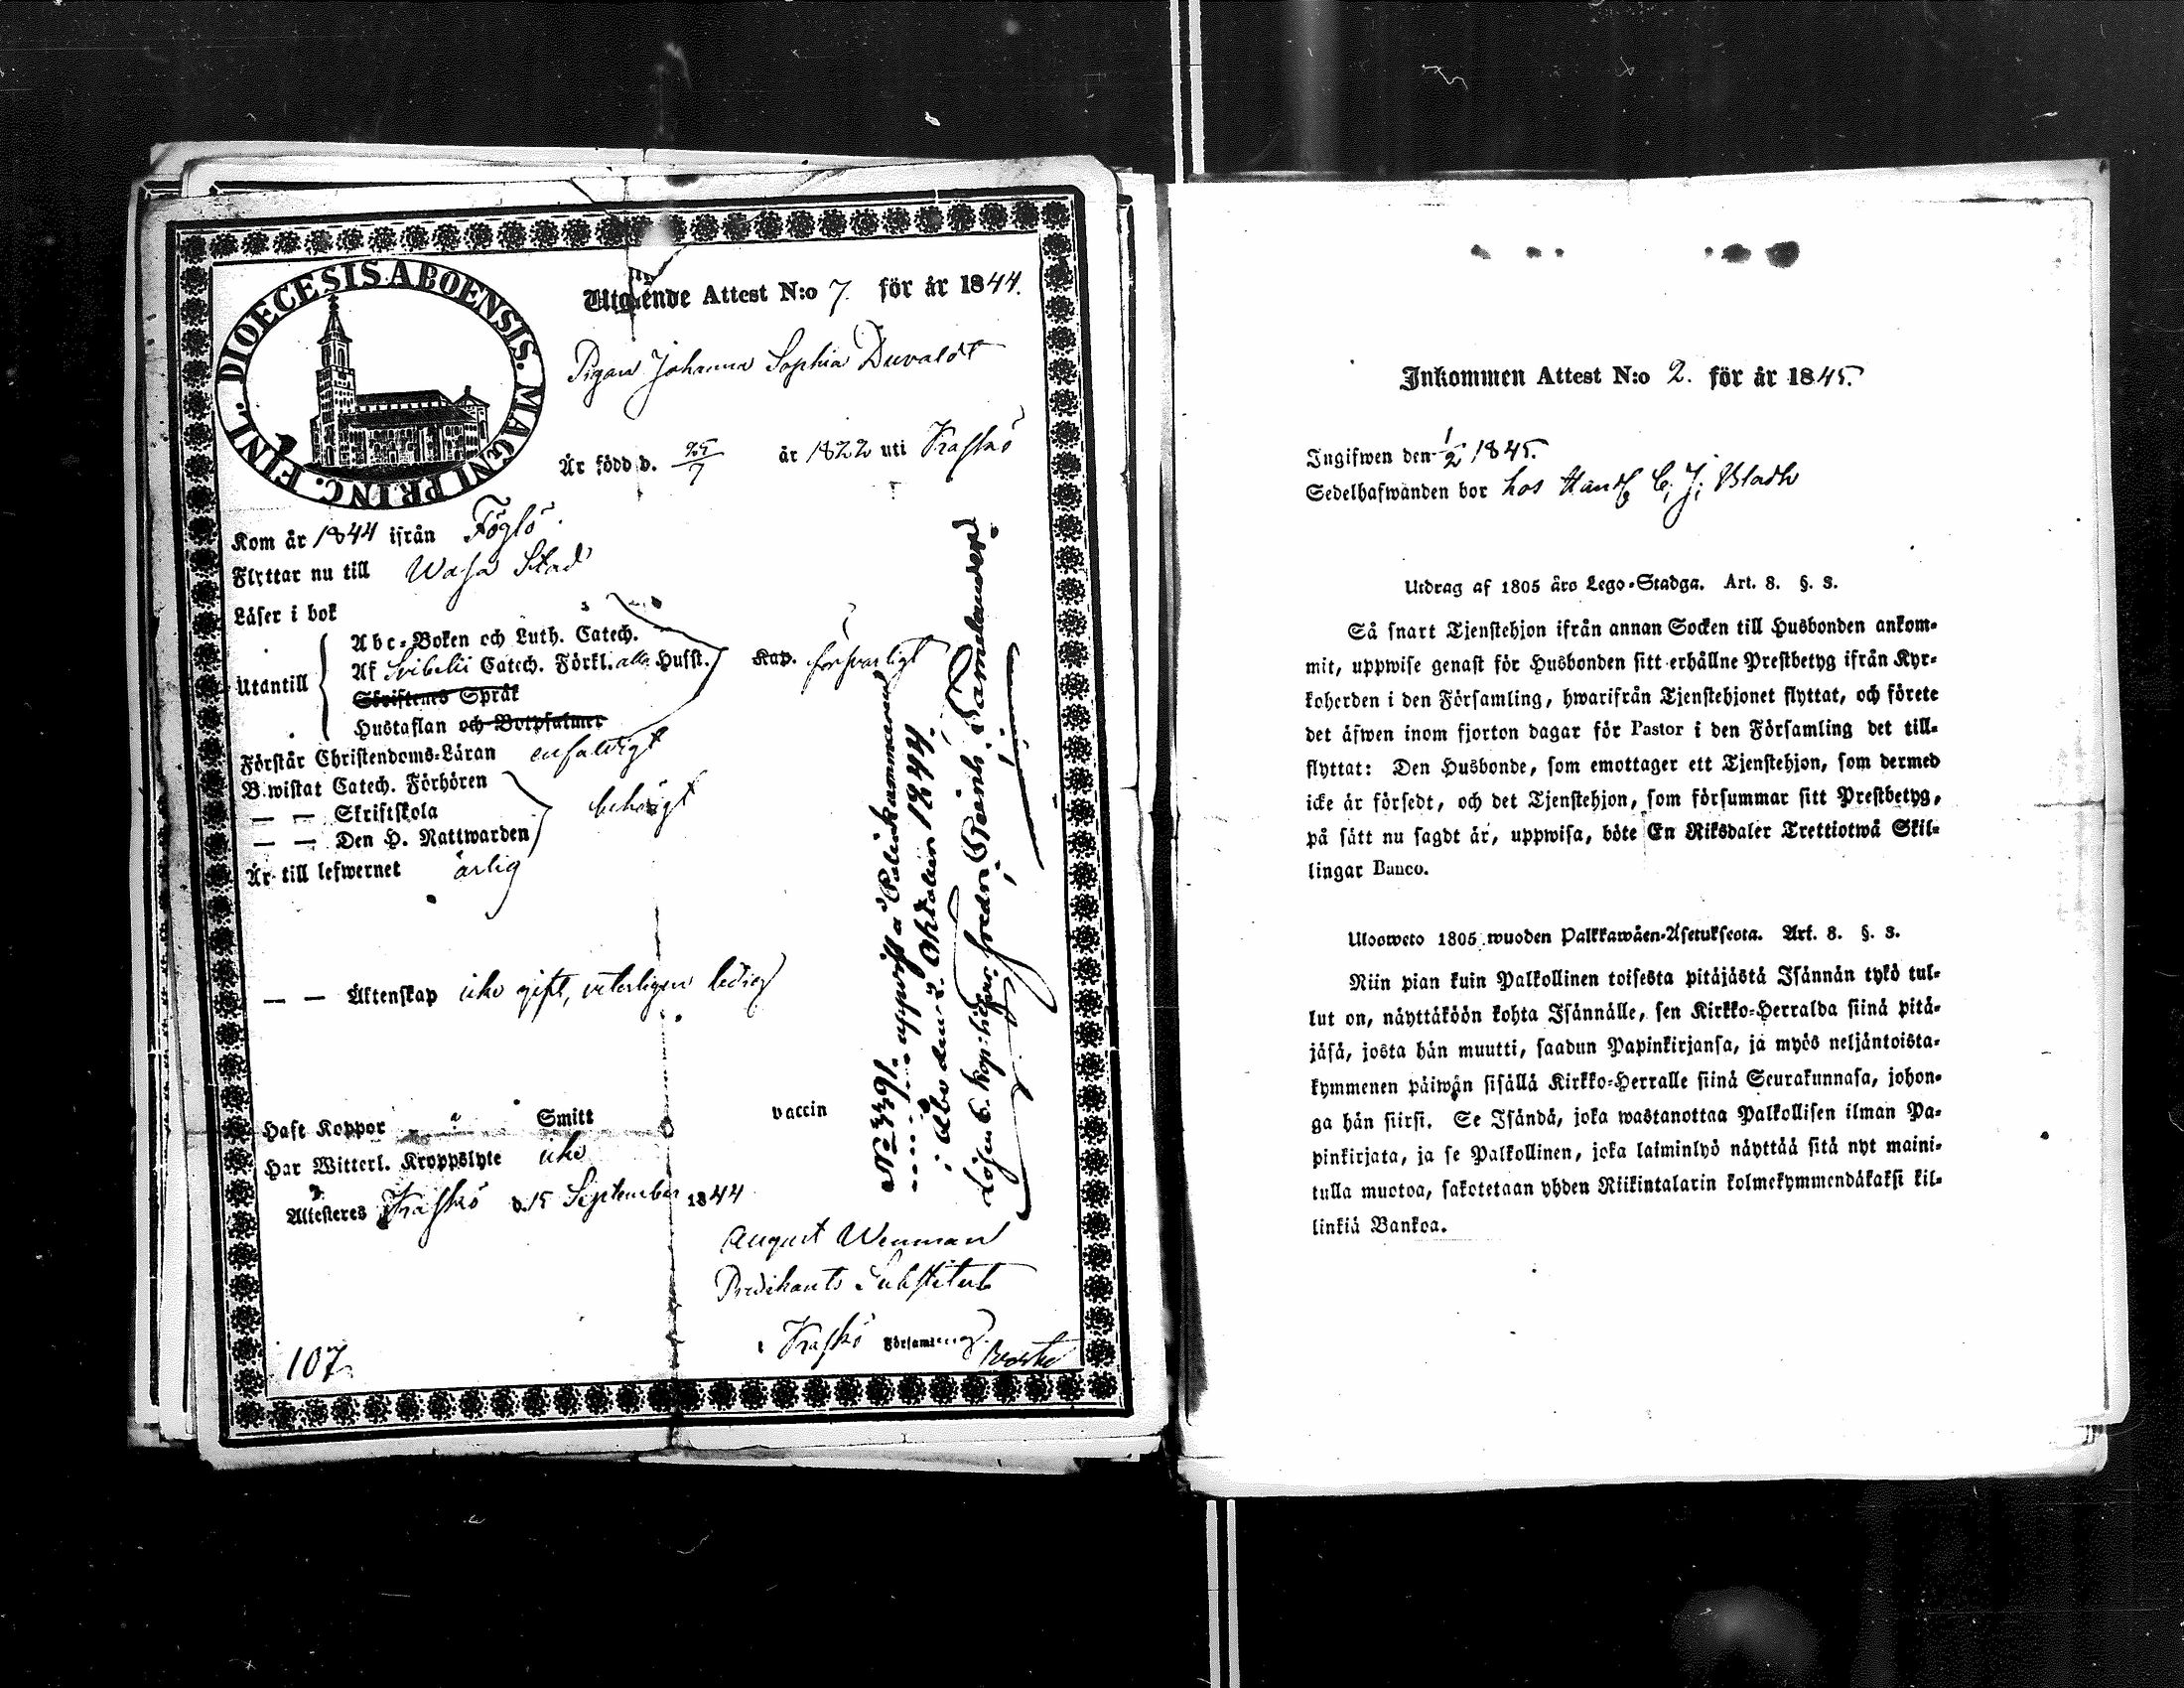 DIOECESIS ABOENSIS. MAGNI PRINC. FINL.
Utgående Attest N:o 7. för år 1844.
Pigan Johanna Sophia Duvaldt
Är född d. 25/7 år 1822 uti Kaskö
Kom år 1844 ifrån Föglö.
Flyttar nu till Wasa Stad
Läser i bok
Utantill
Abc-Boken och Luth. Catech.
Af Svibelii Catech. Förkl. alla Husst. Kap. försvarligt
Skriftenes Språk
Hustaflan och Botpsalmer
Förstår Christendoms-Läran enfaldigt
B.wistat Catech. Förhören
— — Skriftskola behörigt
— — Den H. Nattwarden
Är till lefwernet ärlig
— — Äktenskap icke gift, veterligen ledig
Haft Koppor " Smitt vaccin
Har Witterl. Kroppslyte icke
Attesteres Kaskö d. 15 September 1844
August Wenman
Predikants Substitut
i Kaskö Församling.
107.
uppvist å Poliskammaren
i Åbo den 2. Oktober 1844.
Lösen 6. kop:
Inkommen Attest N:o 2. för år 1845.
Ingifwen den 1/2 1845.
Sedelhafwanden bor hos Handl C. J. Bladh
Utdrag af 1805 års Lego-Stadga. Art. 8. §. 3.
Så snart Tjenstehjon ifrån annan Socken till Husbonden ankom-
mit, uppwise genast för Husbonden sitt erhållne Prestbetyg ifrån Kyr-
koherden i den Församling, hwarifrån Tjenstehjonet flyttat, och förete
det äfwen inom fjorton dagar för Pastor i den Församling det till-
flyttat: Den Husbonde, som emottager ett Tjenstehjon, som dermed
icke är försedt, och det Tjenstehjon, som försummar sitt Prestbetyg,
på sätt nu sagdt är, uppwisa, böte En Riksdaler Trettiotwå Skil-
lingar Banco.
Ulosweto 1805 wuoden Palkkawäen-Asetuksesta. Art. 8. §. 3.
Niin pian kuin Palkollinen toisesta pitäjästä Isännän tykö tul-
lut on, näyttäköön kohta Isännälle, sen Kirkko-Herralda siinä pitä-
jäsä, josta hän muutti, saadun Papinkirjansa, ja myös neljäntoista-
kymmenen päiwän sisällä Kirkko-Herralle siinä Seurakunnasa, johon-
ga hän siirsi. Se Isändä, joka wastanottaa Palkollisen ilman Pa-
pinkirjata, ja se Palkollinen, joka laiminlyö näyttää sitä nyt maini-
tulla muotoa, sakotetaan yhden Riikintalarin kolmekymmendäkaksi kil-
linkiä Bankoa.